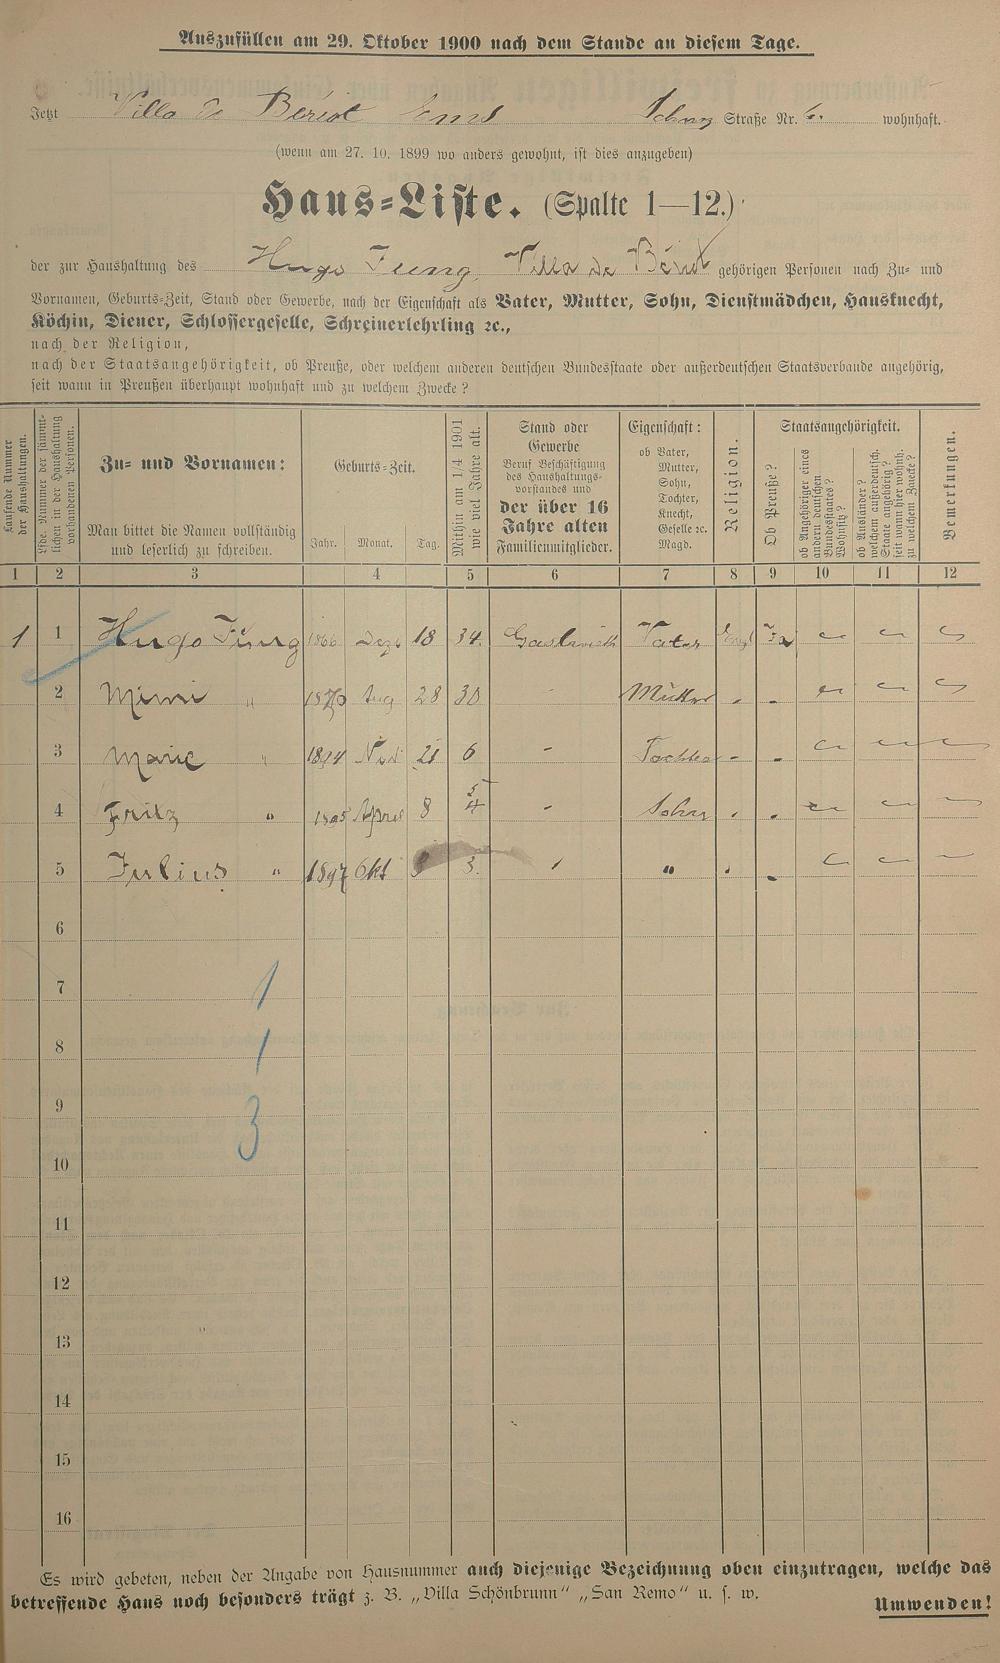 Auszufüllen am 29. Oktober 1900 nach dem Stande an diesem Tage.
Jetzt Villa de Beriot Ems Schanz Straße Nr. 6. wohnhaft.
(wenn am 27. 10. 1899 wo anders gewohnt, ist dies anzugeben)
Haus-Liste. (Spalte 1—12.)
der zur Haushaltung des Hugo Jung, Villa de Beriot gehörigen Personen nach Zu- und
Vornamen, Geburts-Zeit, Stand oder Gewerbe, nach der Eigenschaft als Vater, Mutter, Sohn, Dienstmädchen, Hausknecht,
Köchin, Diener, Schlossergeselle, Schreinerlehrling ꝛc.,
nach der Religion,
nach der Staatsangehörigkeit, ob Preuße, oder welchem anderen deutschen Bundesstaate oder außerdeutschen Staatsverbande angehörig,
seit wann in Preußen überhaupt wohnhaft und zu welchem Zwecke?
Laufende Nummer der Haushaltungen.
Lfde. Nummer der sämmtlichen in der Haushaltung vorhandenen Personen.
Zu- und Vornamen:
Man bittet die Namen vollständig
und leserlich zu schreiben.
Geburts-Zeit.
Jahr. Monat. Tag.
Mithin am 1/4 1901 wie viel Jahre alt.
Stand oder
Gewerbe
Beruf Beschäftigung
des Haushaltungs-
vorstandes und
der über 16
Jahre alten
Familienmitglieder.
Eigenschaft:
ob Vater,
Mutter,
Sohn,
Tochter,
Knecht,
Geselle ꝛc.
Magd.
Religion.
Staatsangehörigkeit.
Ob Preuße?
ob Angehöriger eines andern deutschen Bundesstaates? Wohnsitz?
ob Ausländer? welchem außerdeutsch. Staate angehörig? seit wann hier wohnh. zu welchem Zwecke?
Bemerkungen.
1 2 3 4 5 6 7 8 9 10 11 12
1 1 Hugo Jung 1866 Dez. 18 34. Gastwirth Vater Evgl Ja
2 Mimi " 1870 Aug 28 30 - Mutter
3 Marie " 1894 Nov 21 6 - Tochter
4 Fritz " 1895 April 8 5 - Sohn
5 Julius " 1897 Okt 8 3. "
6
7 1
8 1
9 3
10
11
12
13
14
15
16
Es wird gebeten, neben der Angabe von Hausnummer auch diejenige Bezeichnung oben einzutragen, welche das
betreffende Haus noch besonders trägt z. B. „Villa Schönbrunn" „San Remo" u. s. w.
Umwenden!